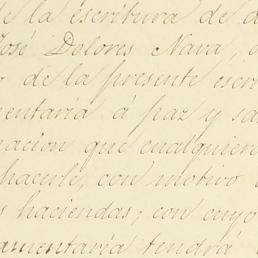 de la escritura de d
José Dolores Nava, o
de la presente escri
mentaría á paz y sal
nacion que cualquiera
hacerle, con motivo
s haciendas; con cuyo
amentaría tendrá